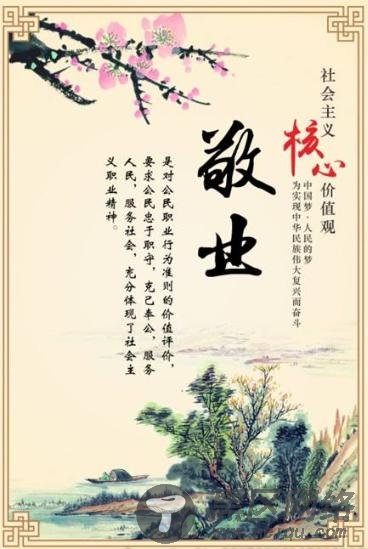 社会主义
核心价值观
中国梦·人民的梦
为实现中华民族伟大复兴而奋斗
敬业
是对公民职业行为准则的价值评价，
要求公民忠于职守，克己奉公，服务
人民，服务社会，充分体现了社会主
义职业精神。